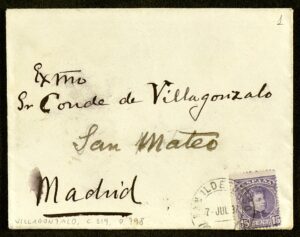 1
Exmo
Sr Conde de Villagonzalo
San Mateo
Madrid
7-JUL
15
VILLAGONZALO, C. 219, D. 798